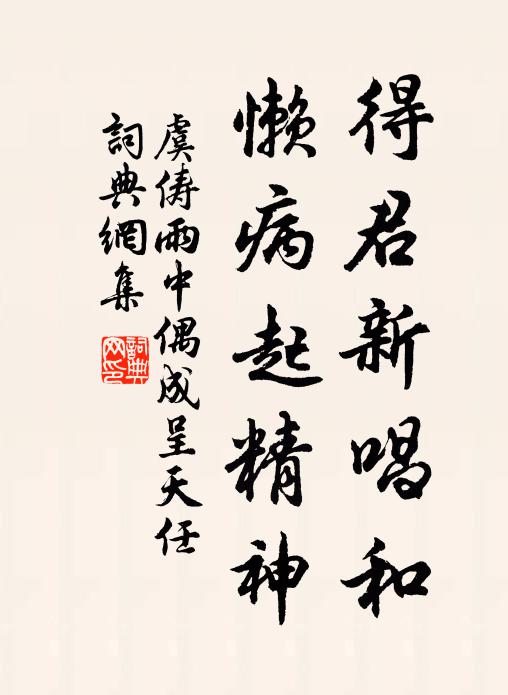 得君新唱和
懶病起精神
虞儔雨中偶成呈天任
詞典網集
詞典網印